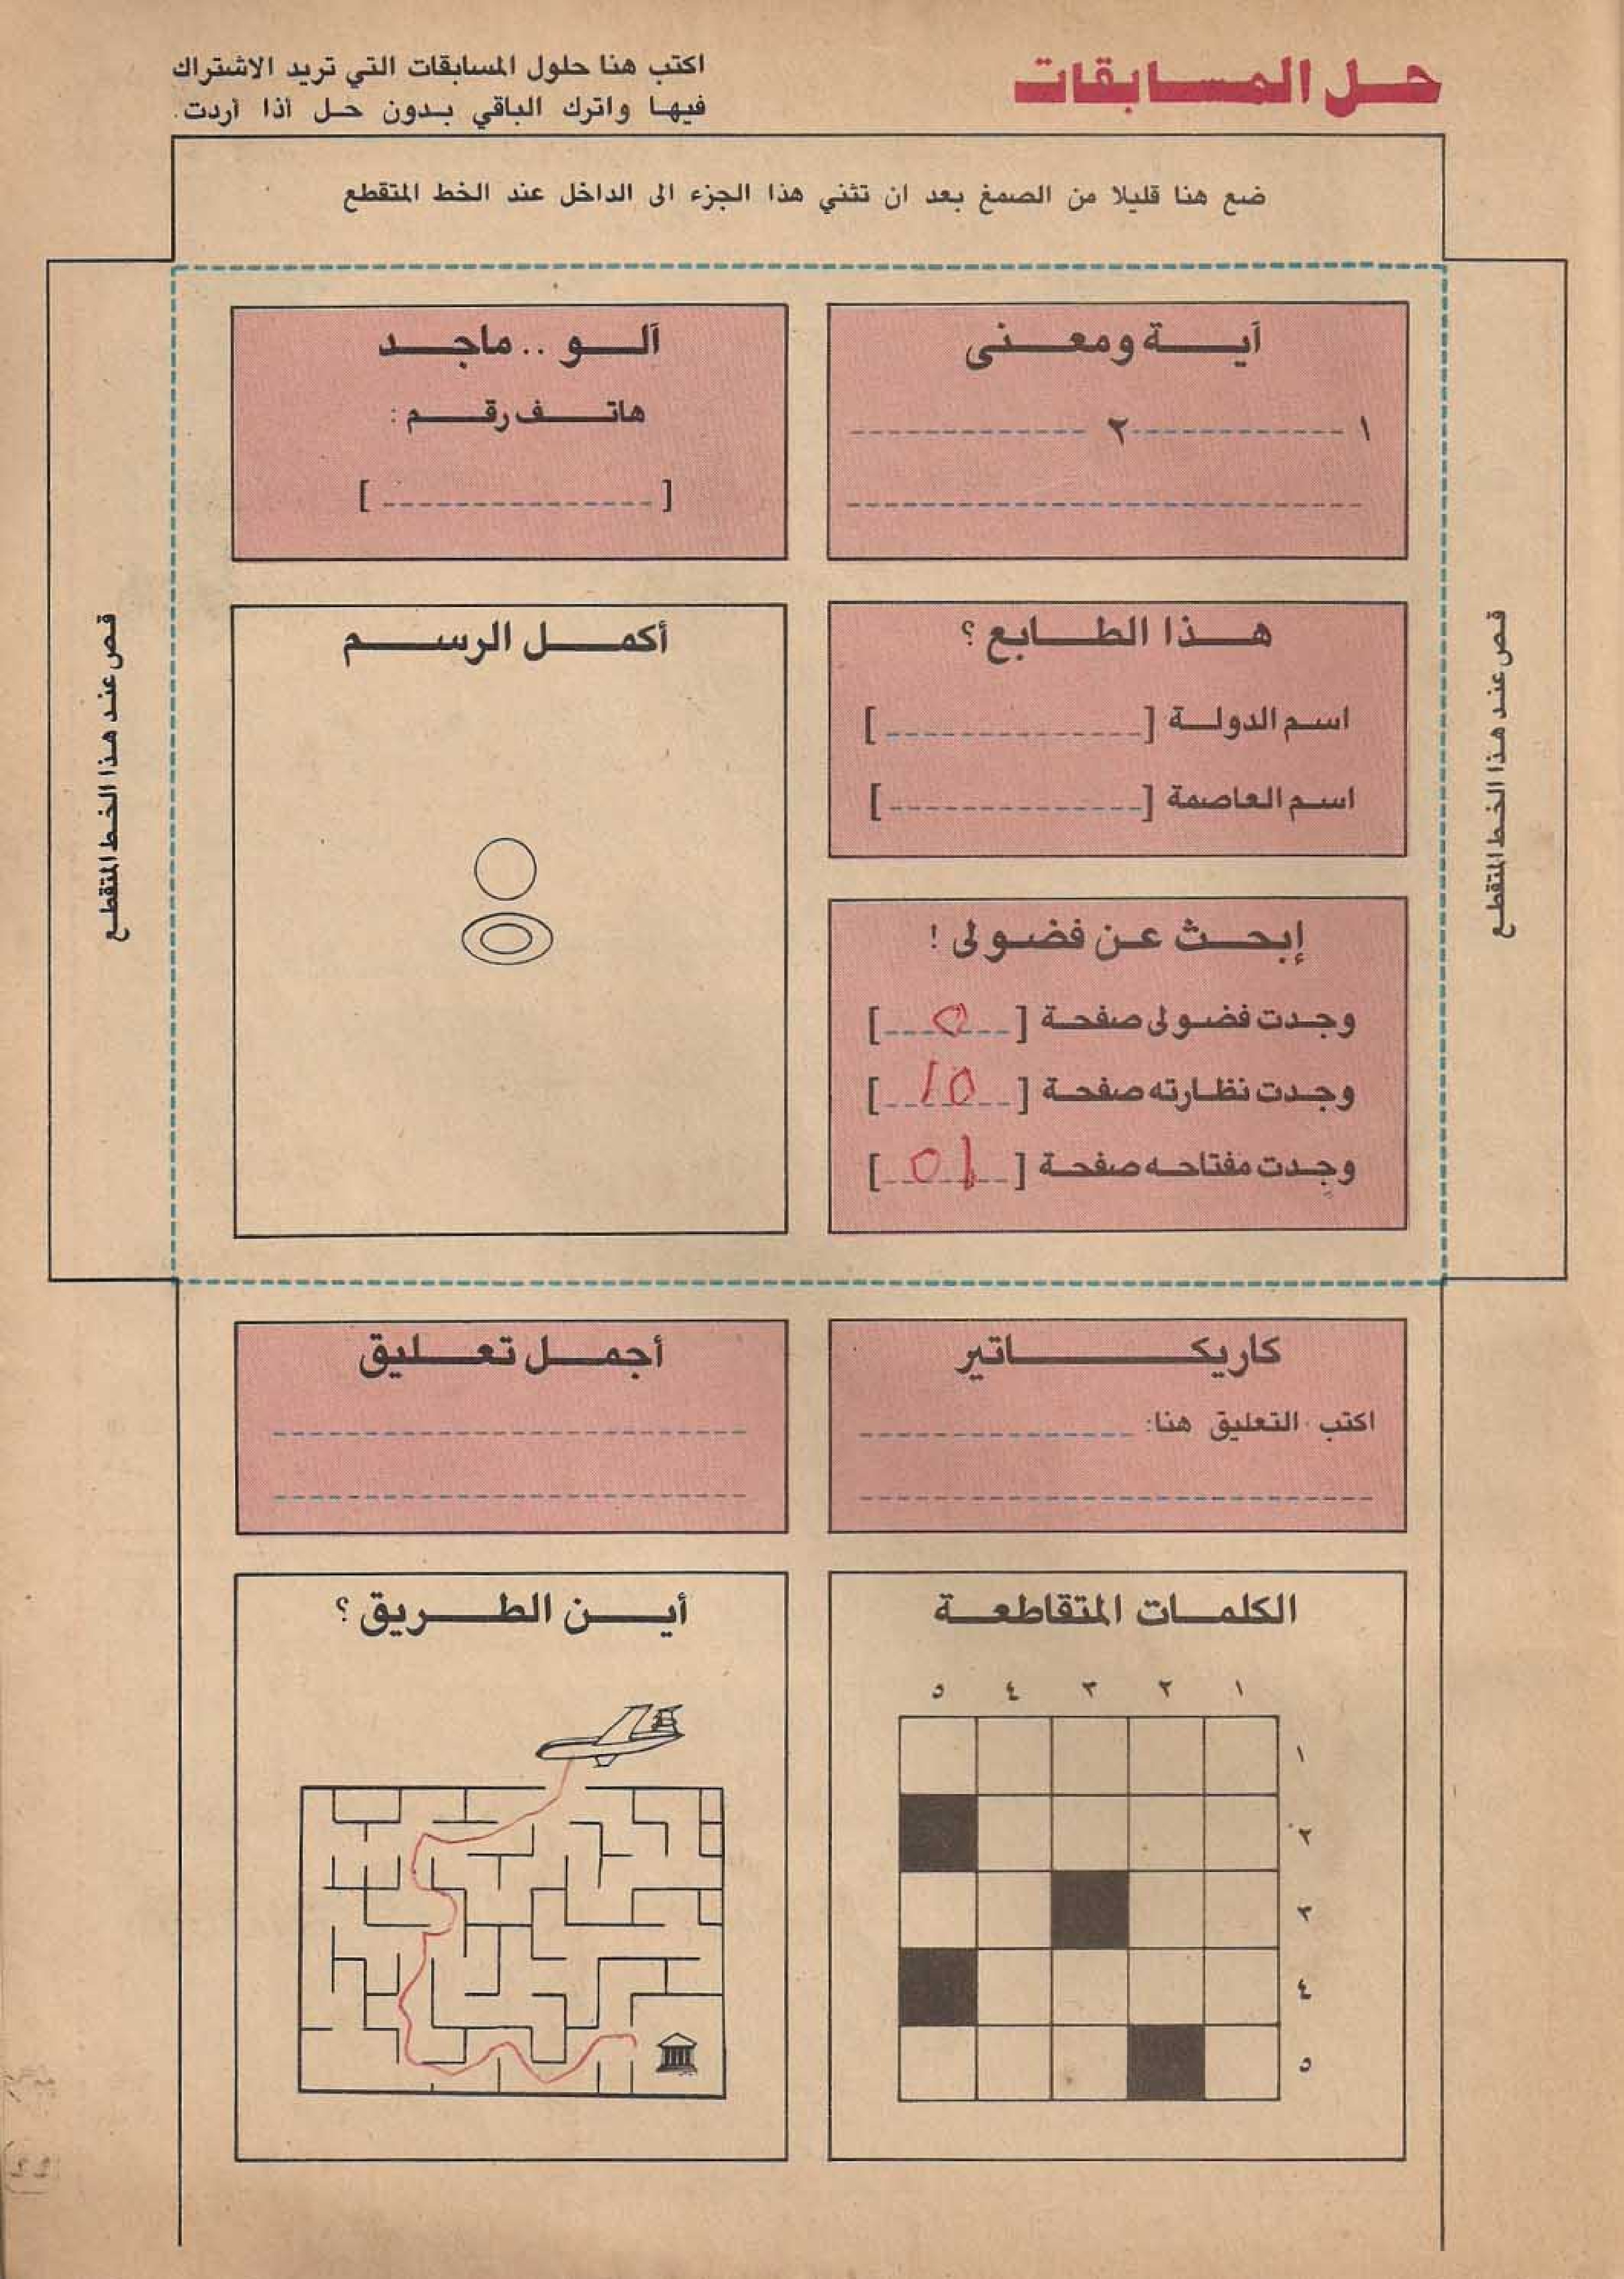 حل المسابقات
اكتب هنا حلول المسابقات التي تريد الاشتراك
فيها واترك الباقي بدون حل أذا أردت.
ضع هنا قليلا من الصمغ بعد ان تثني هذا الجزء الى الداخل عند الخط المتقطع
قص عند هذا الخط المتقطع
آية ومعنى
١ ٢
ألو .. ماجد
هاتف رقم :
[ ]
هذا الطابع ؟
اسم الدولة [ ]
اسم العاصمة [ ]
أكمل الرسم
إبحث عن فضولى !
وجدت فضولى صفحة [ ٥ ]
وجدت نظارته صفحة [ ١٥ ]
وجدت مفتاحه صفحة [ ٥١ ]
كاريكاتير
اكتب التعليق هنا:
أجمل تعليق
الكلمات المتقاطعة
١ ٢ ٣ ٤ ٥
١
٢
٣
٤
٥
أين الطريق ؟
قص عند هذا الخط المتقطع